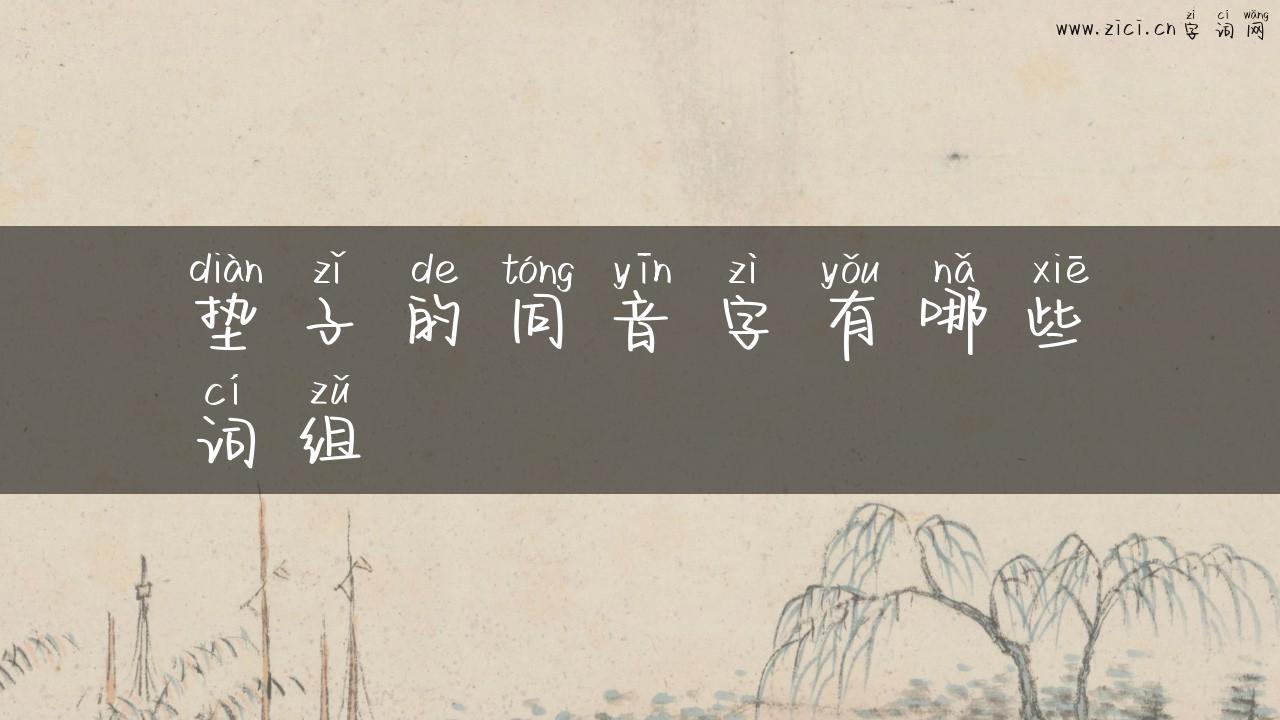 zì cí wǎng
www.zici.cn 字词网
diàn zǐ de tóng yīn zì yǒu nǎ xiē
垫子的同音字有哪些
cí zǔ
词组